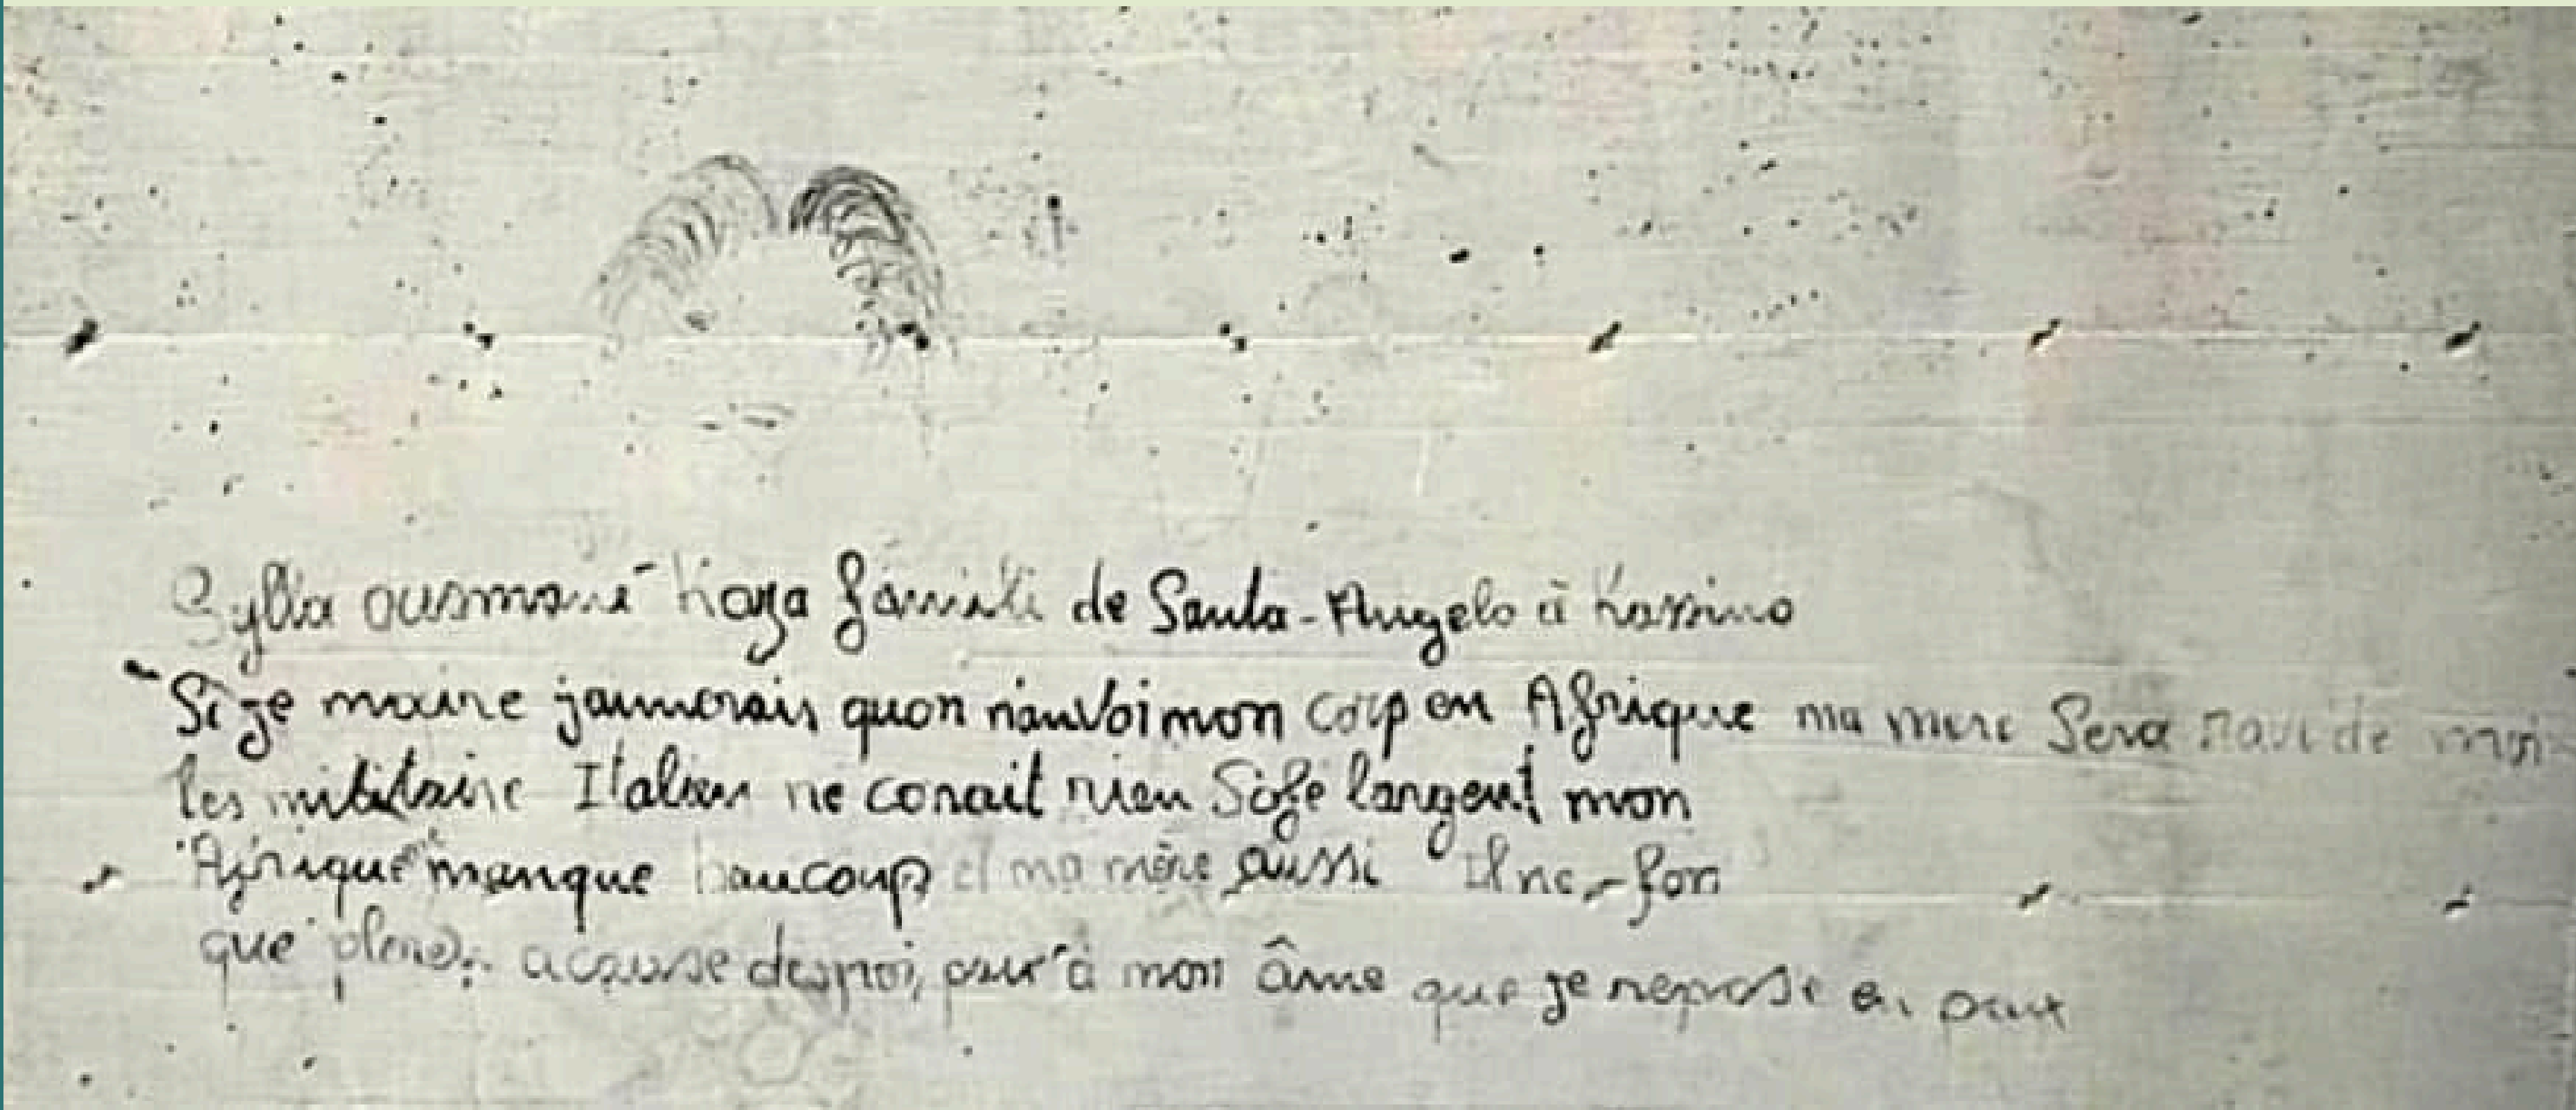 Sylla ousmane Kaza famili de Santa-Angelo à Kassino
Si je moure jaimerais quon nanvoi mon corp en Afrique ma mere Sera ravi de moi
les militaire Italien ne conait rien Sofe largent mon
Afrique manque baucoup et ma mère aussi il ne-fon
que plere. acause de moi, paix à mon âme que je repose en paix